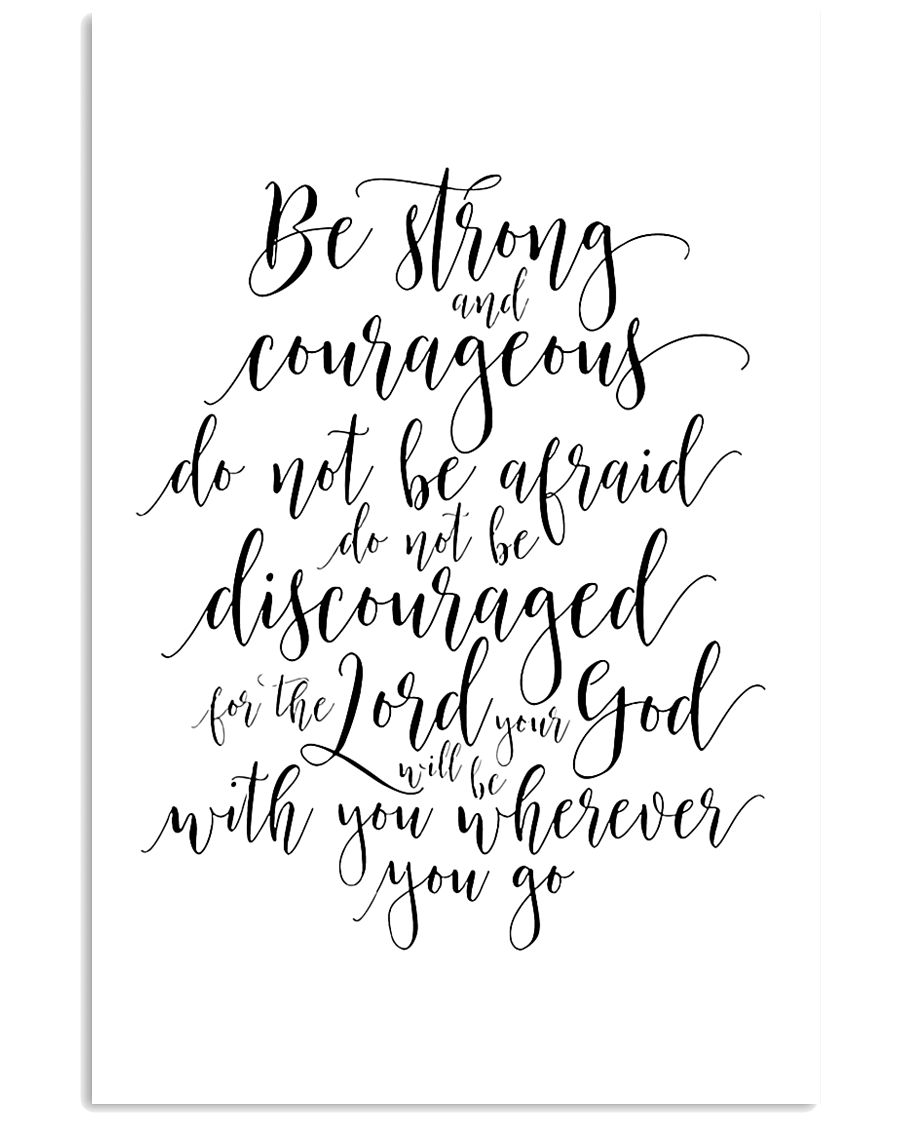 Be strong
and
courageous
do not be afraid
do not be
discouraged
for the Lord your God
will be
with you wherever
you go